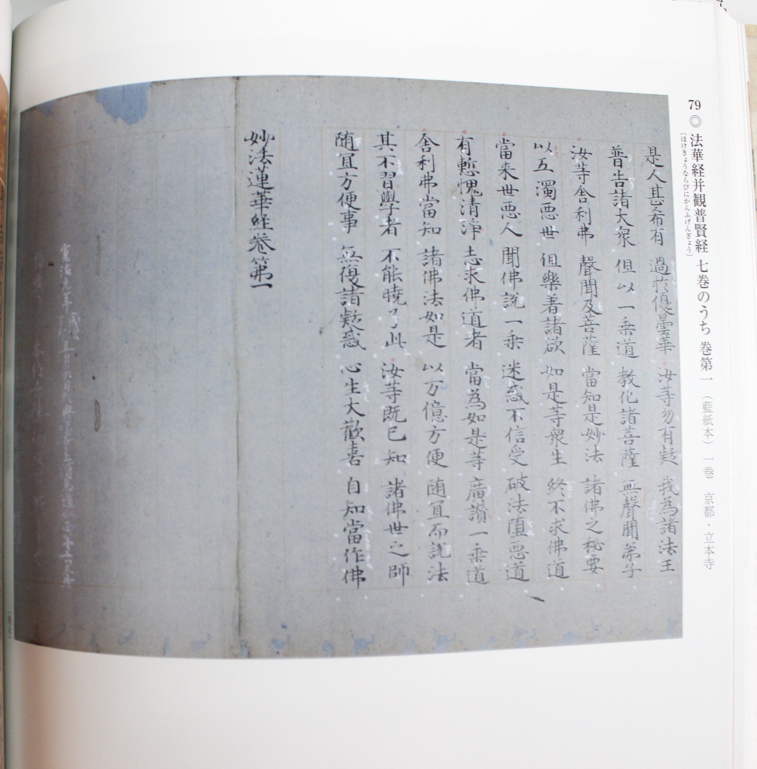 79 ◎ 法華経并観普賢経 七巻のうち 巻第一 （藍紙本） 一巻 京都・立本寺
［ほけきょうならびにかんふげんぎょう］
是人甚希有 過於優曇華 汝等勿有疑 我為諸法王
普告諸大衆 但以一乗道 教化諸菩薩 無聲聞弟子
汝等舎利弗 聲聞及菩薩 當知是妙法 諸佛之秘要
以五濁悪世 但樂著諸欲 如是等衆生 終不求佛道
當来世悪人 聞佛説一乗 迷惑不信受 破法堕悪道
有慙愧清浄 志求佛道者 當為如是等 廣讃一乗道
舎利弗當知 諸佛法如是 以万億方便 随冝而説法
其不習學者 不能曉了此 汝等既已知 諸佛世之師
随冝方便事 無復諸疑惑 心生大歡喜 自知當作佛
妙法蓮華経巻第一